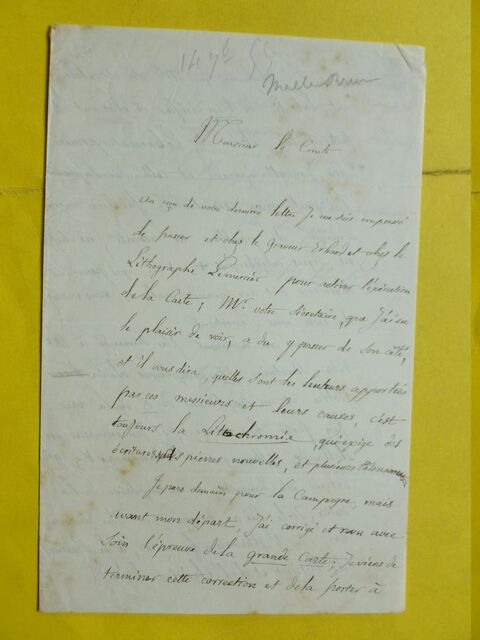 14 7b 55
Malte-Brun
Monsieur le Comte
Au reçu de votre dernière lettre je me suis empressé
de passer et chez le graveur Erhard et chez le
Lithographe Lemercier pour activer l'exécution
de la Carte; Mr. votre Secrétaire, que j'ai eu
le plaisir de voir, a du y passer de son côté,
et il vous dira, quelles sont les lenteurs apportées
par ces messieurs et leurs causes, c'est
toujours la Lithochromie, qui exige des
écritures, des pierres nouvelles, et plusieurs
Je pars demain pour la Campagne, mais
avant mon départ, j'ai corrigé et revu avec
soin l'épreuve de la grande Carte; Je viens de
terminer cette correction et de la porter à